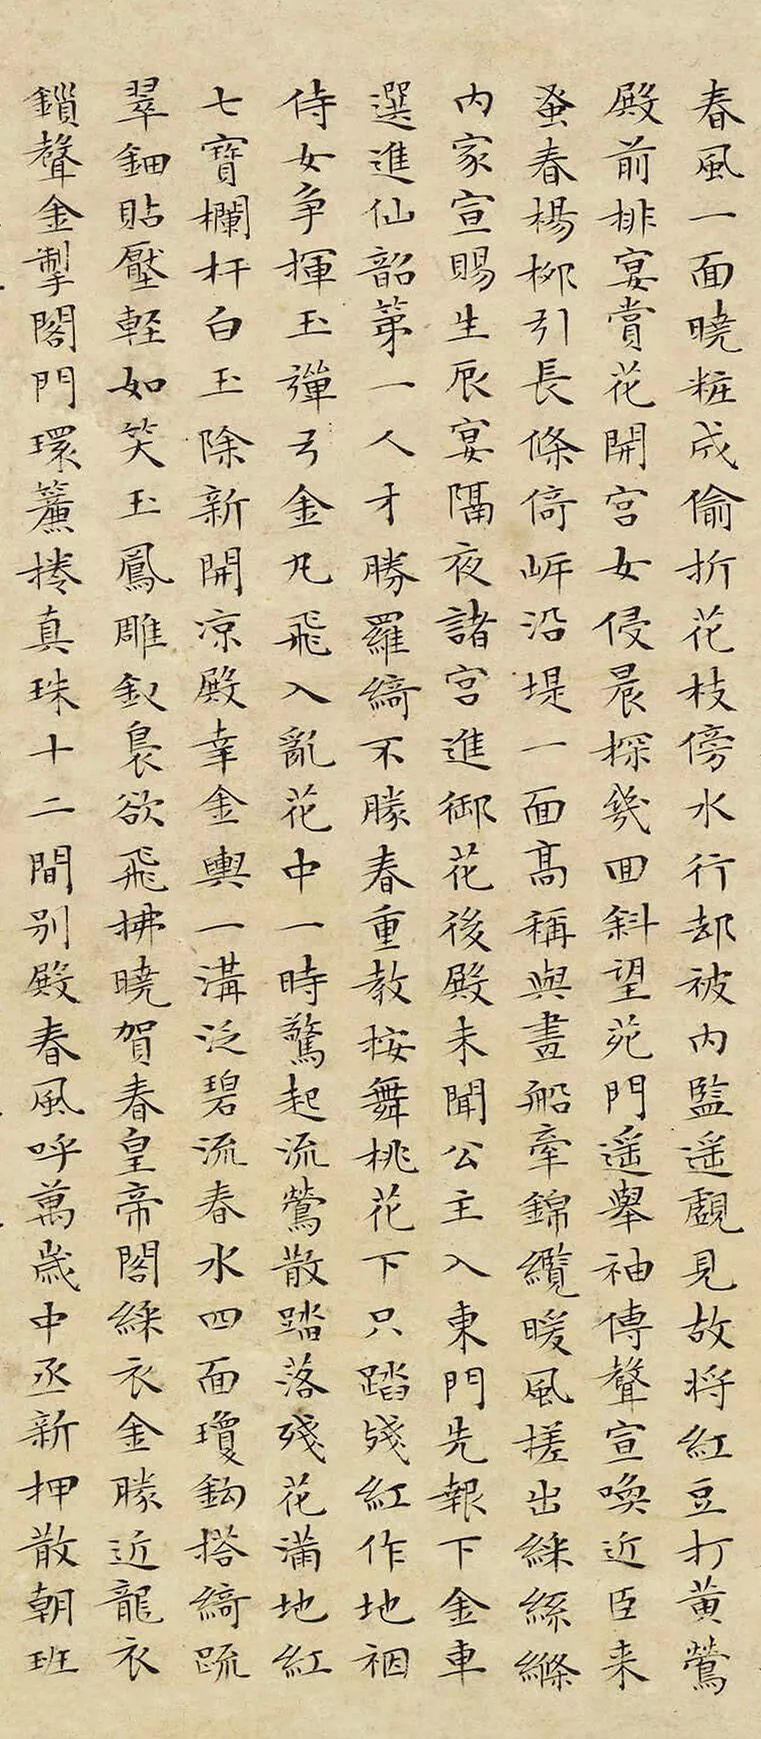 春風一面曉粧成偷折花枝傍水行却被内監遥覷見故將紅豆打黄鶯
殿前排宴賞花開宫女侵晨探幾回斜望苑門遥舉袖傳聲宣喚近臣来
蚤春楊柳引長條倚岍沿堤一面高稱與畫船牽錦纜暖風搓出綵絲絛
内家宣賜生辰宴隔夜諸宫進御花後殿未聞公主入東門先報下金車
選進仙韶第一人才勝羅綺不勝春重教按舞桃花下只踏殘紅作地裀
侍女争揮玉彈弓金丸飛入亂花中一時驚起流鶯散踏落殘花滿地紅
七寳欄杆白玉除新開凉殿幸金輿一溝泛碧流春水四面瓊鈎搭綺疏
翠鈿貼靨輕如笑玉鳳雕釵裊欲飛拂曉賀春皇帝閣綵衣金勝近龍衣
鎖聲金掣閤門環簾捲真珠十二間别殿春風呼萬歲中丞新押散朝班